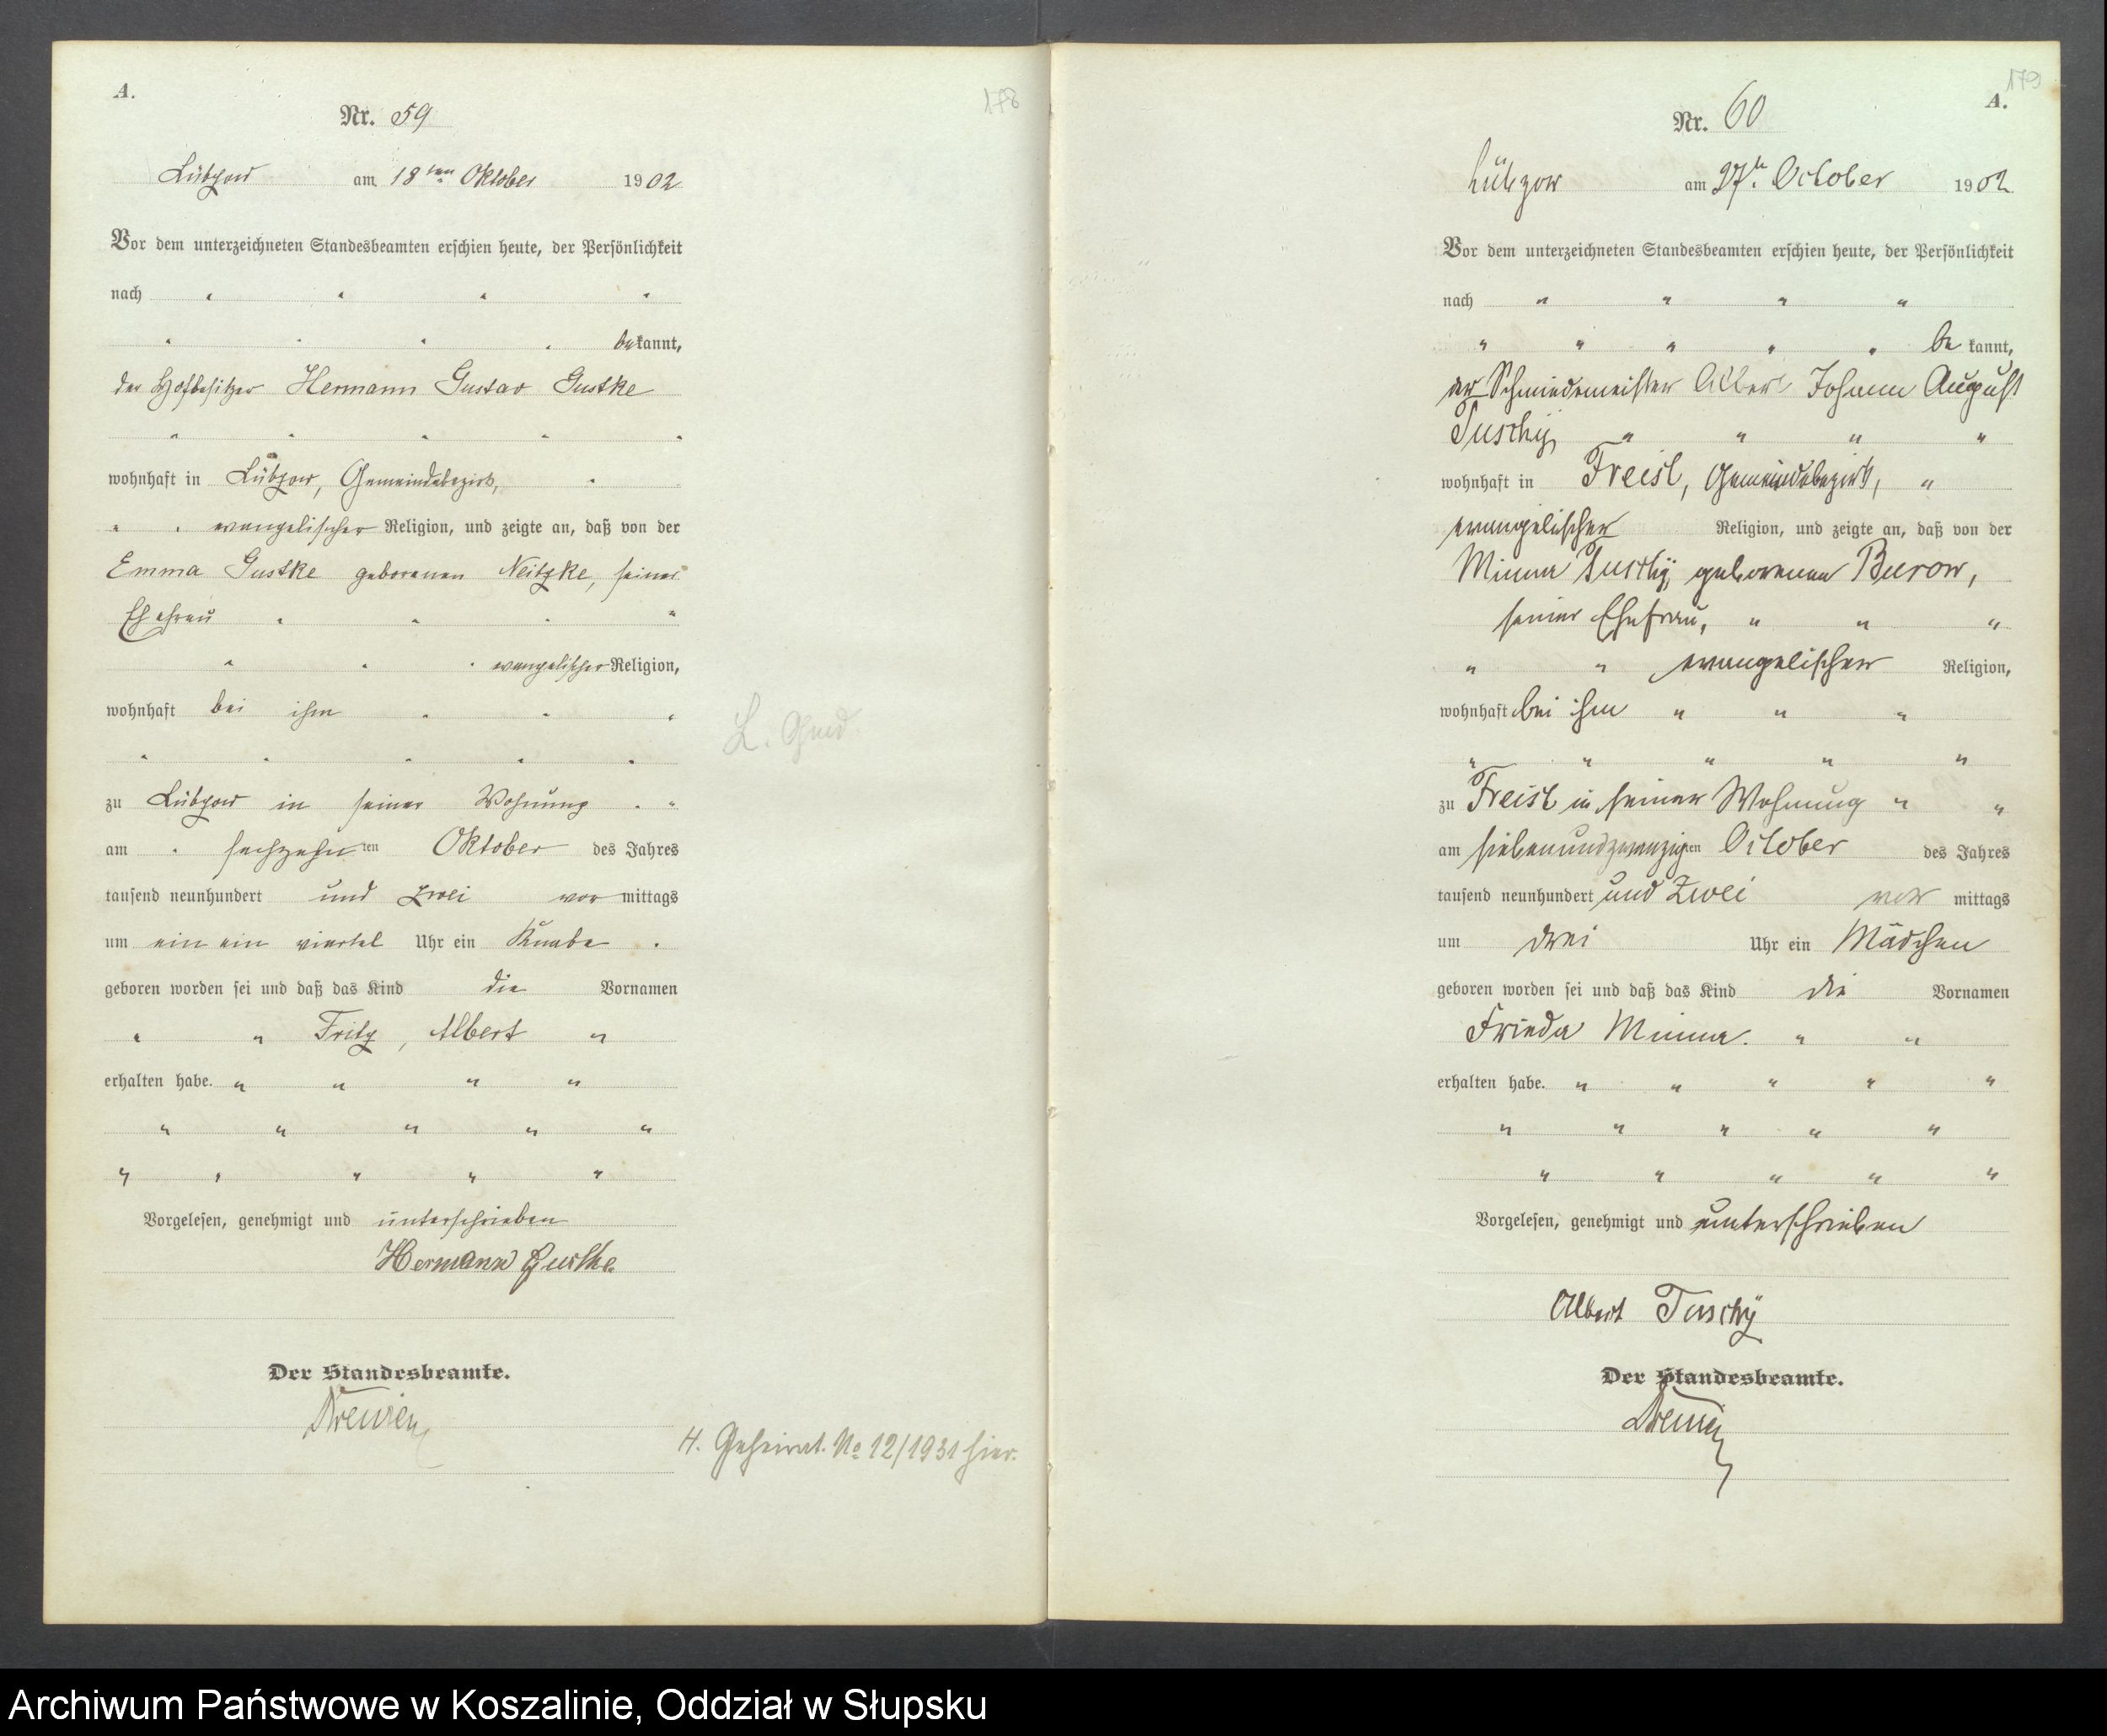 A.
178
Nr. 59
Lübzow am 18ten Oktober 1902
Vor dem unterzeichneten Standesbeamten erschien heute, der Persönlichkeit
nach " " " "
" " " " bekannt,
der Hofbesitzer Hermann Gustav Gustke
" " " " "
wohnhaft in Lübzow, Gemeindebezirk, "
" " evangelischer Religion, und zeigte an, daß von der
Emma Gustke geborenen Neitzke, seiner
Ehefrau " " " "
" " " evangelischer Religion,
wohnhaft bei ihm " " "
" " " " "
zu Lübzow in seiner Wohnung " "
am " sechzehnten Oktober des Jahres
tausend neunhundert und zwei vormittags
um ein ein viertel Uhr ein Knabe "
geboren worden sei und daß das Kind die Vornamen
" " Fritz, Albert "
erhalten habe. " " " "
" " " " "
" " " " "
Vorgelesen, genehmigt und unterschrieben
Hermann Gustke
Der Standesbeamte.
Drewien
L. Gmd.
H. Geheirat. No 12/1931 hier.
179
A.
Nr. 60
Lübzow am 27te October 1902
Vor dem unterzeichneten Standesbeamten erschien heute, der Persönlichkeit
nach " " " "
" " " " " bekannt,
der Schmiedemeister Albert Johann August
Tuschy " " " "
wohnhaft in Freist, Gemeindebezirk, "
evangelischer Religion, und zeigte an, daß von der
Minna Tuschy, geborenen Burow,
seiner Ehefrau, " " "
" " evangelischer Religion,
wohnhaft bei ihm " " "
" " " " "
zu Freist in seiner Wohnung " "
am siebenundzwanzigten October des Jahres
tausend neunhundert und Zwei vor mittags
um drei Uhr ein Mädchen
geboren worden sei und daß das Kind die Vornamen
Frieda Minna. " "
erhalten habe. " " " " "
" " " " "
" " " " "
Vorgelesen, genehmigt und unterschrieben
Albert Tuschÿ
Der Standesbeamte.
Drewien
Archiwum Państwowe w Koszalinie, Oddział w Słupsku